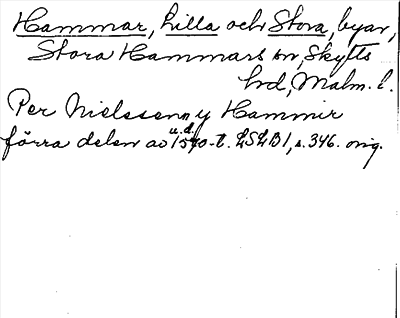 Hammar, Lilla och Stora, byar,
Stora Hammars sn, Skytts
hd, Malm. l.
Per Nielssenn y Hammir
u.d.
förra delen av 1540-t. LSLB1, s. 346. orig.